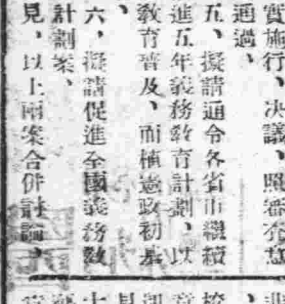 實施行、決議、照審查意
通過、
五、擬請通令各省市繼續
進五年義務教育計劃、以
教育普及、而植憲政初基
、
六、擬請促進全國義務教
計劃案、
見、以上兩案合併討論、